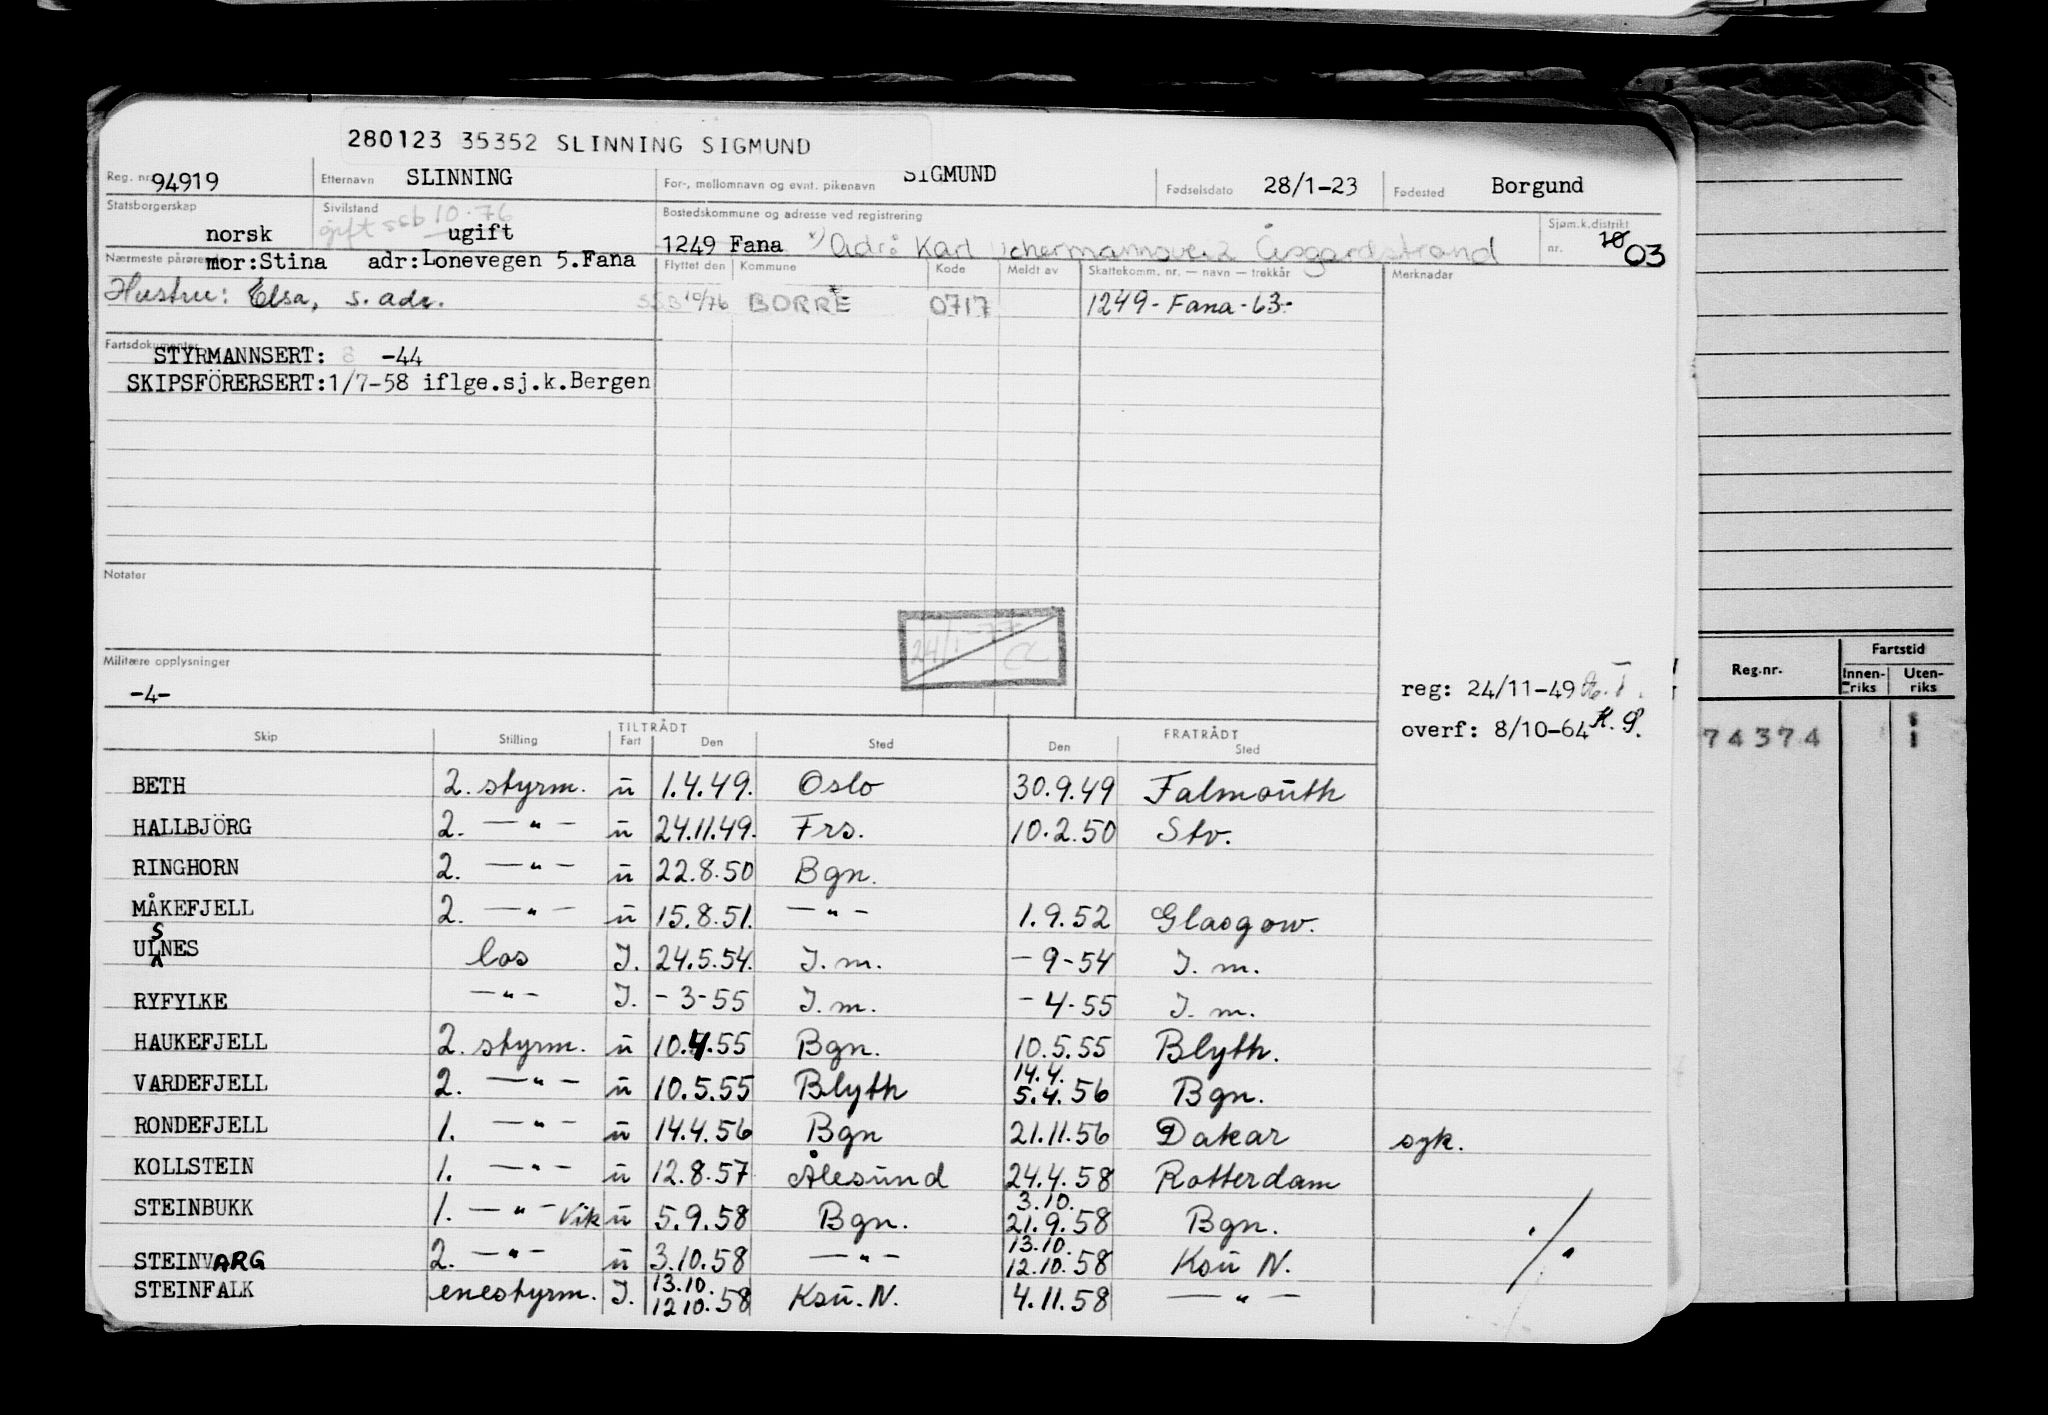 280123 35352 SLINNING SIGMUND
Reg. nr. 94919 Etternavn SLINNING For-, mellomnavn og evnt. pikenavn SIGMUND Fødselsdato 28/1-23 Fødested Borgund
Statsborgerskap norsk Sivilstand gift ssb 10.76 ugift Bostedskommune og adresse ved registrering 1249 Fana x) Adr: Karl Åsgardstrand Sjøm.k.distrikt nr. 10 03
Nærmeste pårørende mor:Stina adr:Lonevegen 5.Fana
Hustru: Elsa, s. adr.
Flyttet den Kommune Kode Meldt av Skattekomm. nr. — navn — trekkår Merknader
SSB 10/76 BORRE 0717 1249-Fana-63-
Fartsdokumenter
STYRMANNSERT: 8 -44
SKIPSFÖRERSERT:1/7-58 iflge.sj.k.Bergen
Notater
24/1-77 CC
Militære opplysninger
-4-
reg: 24/11-49
overf: 8/10-64 K. P.
Reg.nr. Fartstid
Innenriks Utenriks
74374 1
TILTRÅDT FRATRÅDT
Skip Stilling Fart Den Sted Den Sted
BETH 2. styrm. u 1.4.49. Oslo 30.9.49 Falmouth
HALLBJÖRG 2. —"— u 24.11.49. Frs. 10.2.50 Stv.
RINGHORN 2. —"— u 22.8.50 Bgn.
MÅKEFJELL 2. —"— u 15.8.51. —"— 1.9.52 Glasgow.
ULSNES los I. 24.5.54. I. m. -9-54 I. m.
RYFYLKE —"— I. -3-55 I. m. -4-55 I. m.
HAUKEFJELL 2. styrm. u 10.4.55 Bgn. 10.5.55 Blyth.
VARDEFJELL 2. —"— u 10.5.55 Blyth 14.4. 5.4.56 Bgn.
RONDEFJELL 1. —"— u 14.4.56 Bgn 21.11.56 Dakar syk.
KOLLSTEIN 1. —"— u 12.8.57 Ålesund 24.4.58 Rotterdam
STEINBUKK 1. —"— Vik u 5.9.58 Bgn. 3.10. 21.9.58 Bgn. ./.
STEINVARG 2. —"— u 3.10.58 —"— 13.10. 12.10.58 Ksu N.
STEINFALK enestyrm. I. 13.10. 12.10.58 Ksu. N. 4.11.58 —"—